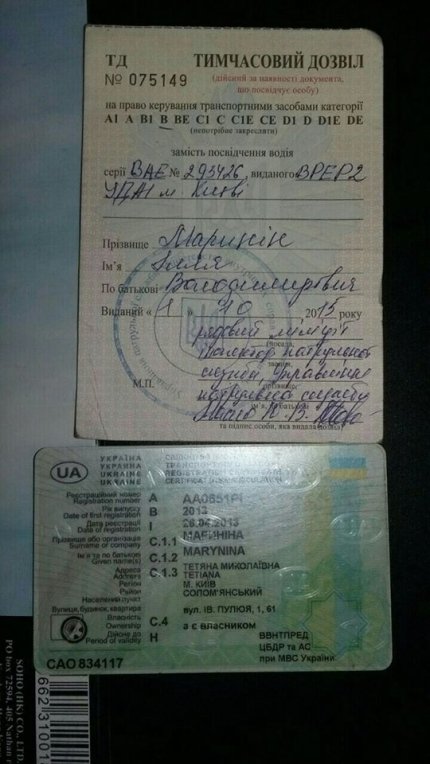 ТД ТИМЧАСОВИЙ ДОЗВІЛ
№ 075149 (дійсний за наявності документа,
що посвідчує особу)
на право керування транспортними засобами категорії
А1 А В1 В ВЕ С1 С С1Е СЕ D1 D D1E DE
(непотрібне закреслити)
замість посвідчення водія
серії ВАЕ № 293426, виданого ВРЕР2
УДАІ м Києві
Прізвище Маринін
Ім'я Ілля
По батькові Володимирович
Виданий « 1 » 10 2015 року
рядовий міліції
(посада,
інспектор патрульної
служби, Управління
патрульної служби
М.П.
та підпис особи, яка видала
UA УКРАЇНА
УКРАИНА
UKRAINE
Реєстраційний номер A AA0651PI
Registration number
Рік випуску B 2013
Date of first registration
Дата реєстрації I 26.04.2013
Date of registration
Прізвище або організація C.1.1 МАРИНІНА
Surname or company MARYNINA
Ім'я та по батькові C.1.2 ТЕТЯНА МИКОЛАЇВНА
Given name(s) TETIANA
Адреса C.1.3 М. КИЇВ
Address
Регіон СОЛОМ'ЯНСЬКИЙ
Район
Населений пункт
Вулиця, будинок, квартира вул. ІВ. ПУЛЮЯ, 1, 61
Власність C.4 а є власником
Ownership
Дійсне до H ВВНТПРЕД
Period of validity ЦБДР та АС
при МВС України
САО 834117
SOHO (HK) CO., LTD.
PO box 72594, 405 Nathan
662 31001